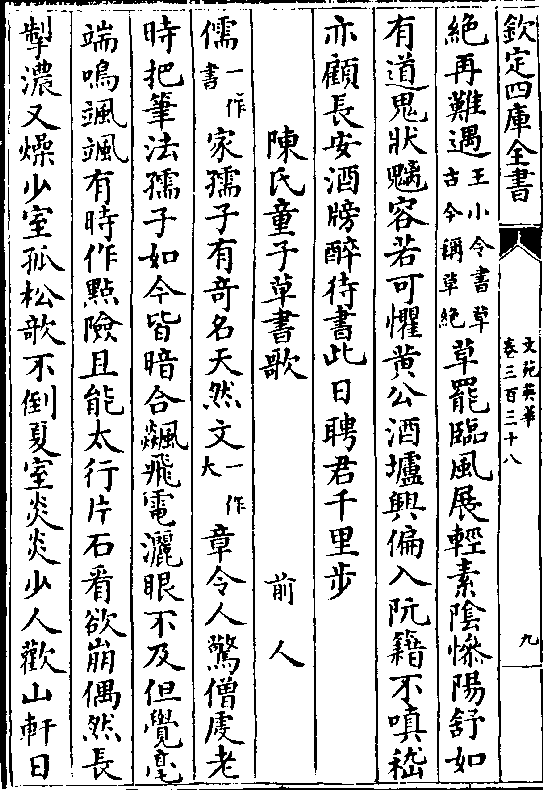 欽定四庫全書
文苑英華
卷三百三十八
九
絶再難遇王小令書草古今稱草絶草罷臨風展輕素隂慘陽舒如
有道鬼狀魑容若可懼黄公酒壚興偏入阮籍不嗔嵇
亦顧長安酒牓醉待書此日聘君千里步
陳氏童子草書歌 前人
儒一作書家孺子有竒名天然文一作大章令人驚僧虔老
時把筆法孺子如今皆暗合飈飛電灑眼不及但覺毫
端鳴颯颯有時作點險且能太行片石看欲崩偶然長
掣濃又燥少室孤松歌不倒夏室炎炎少人歡山軒日